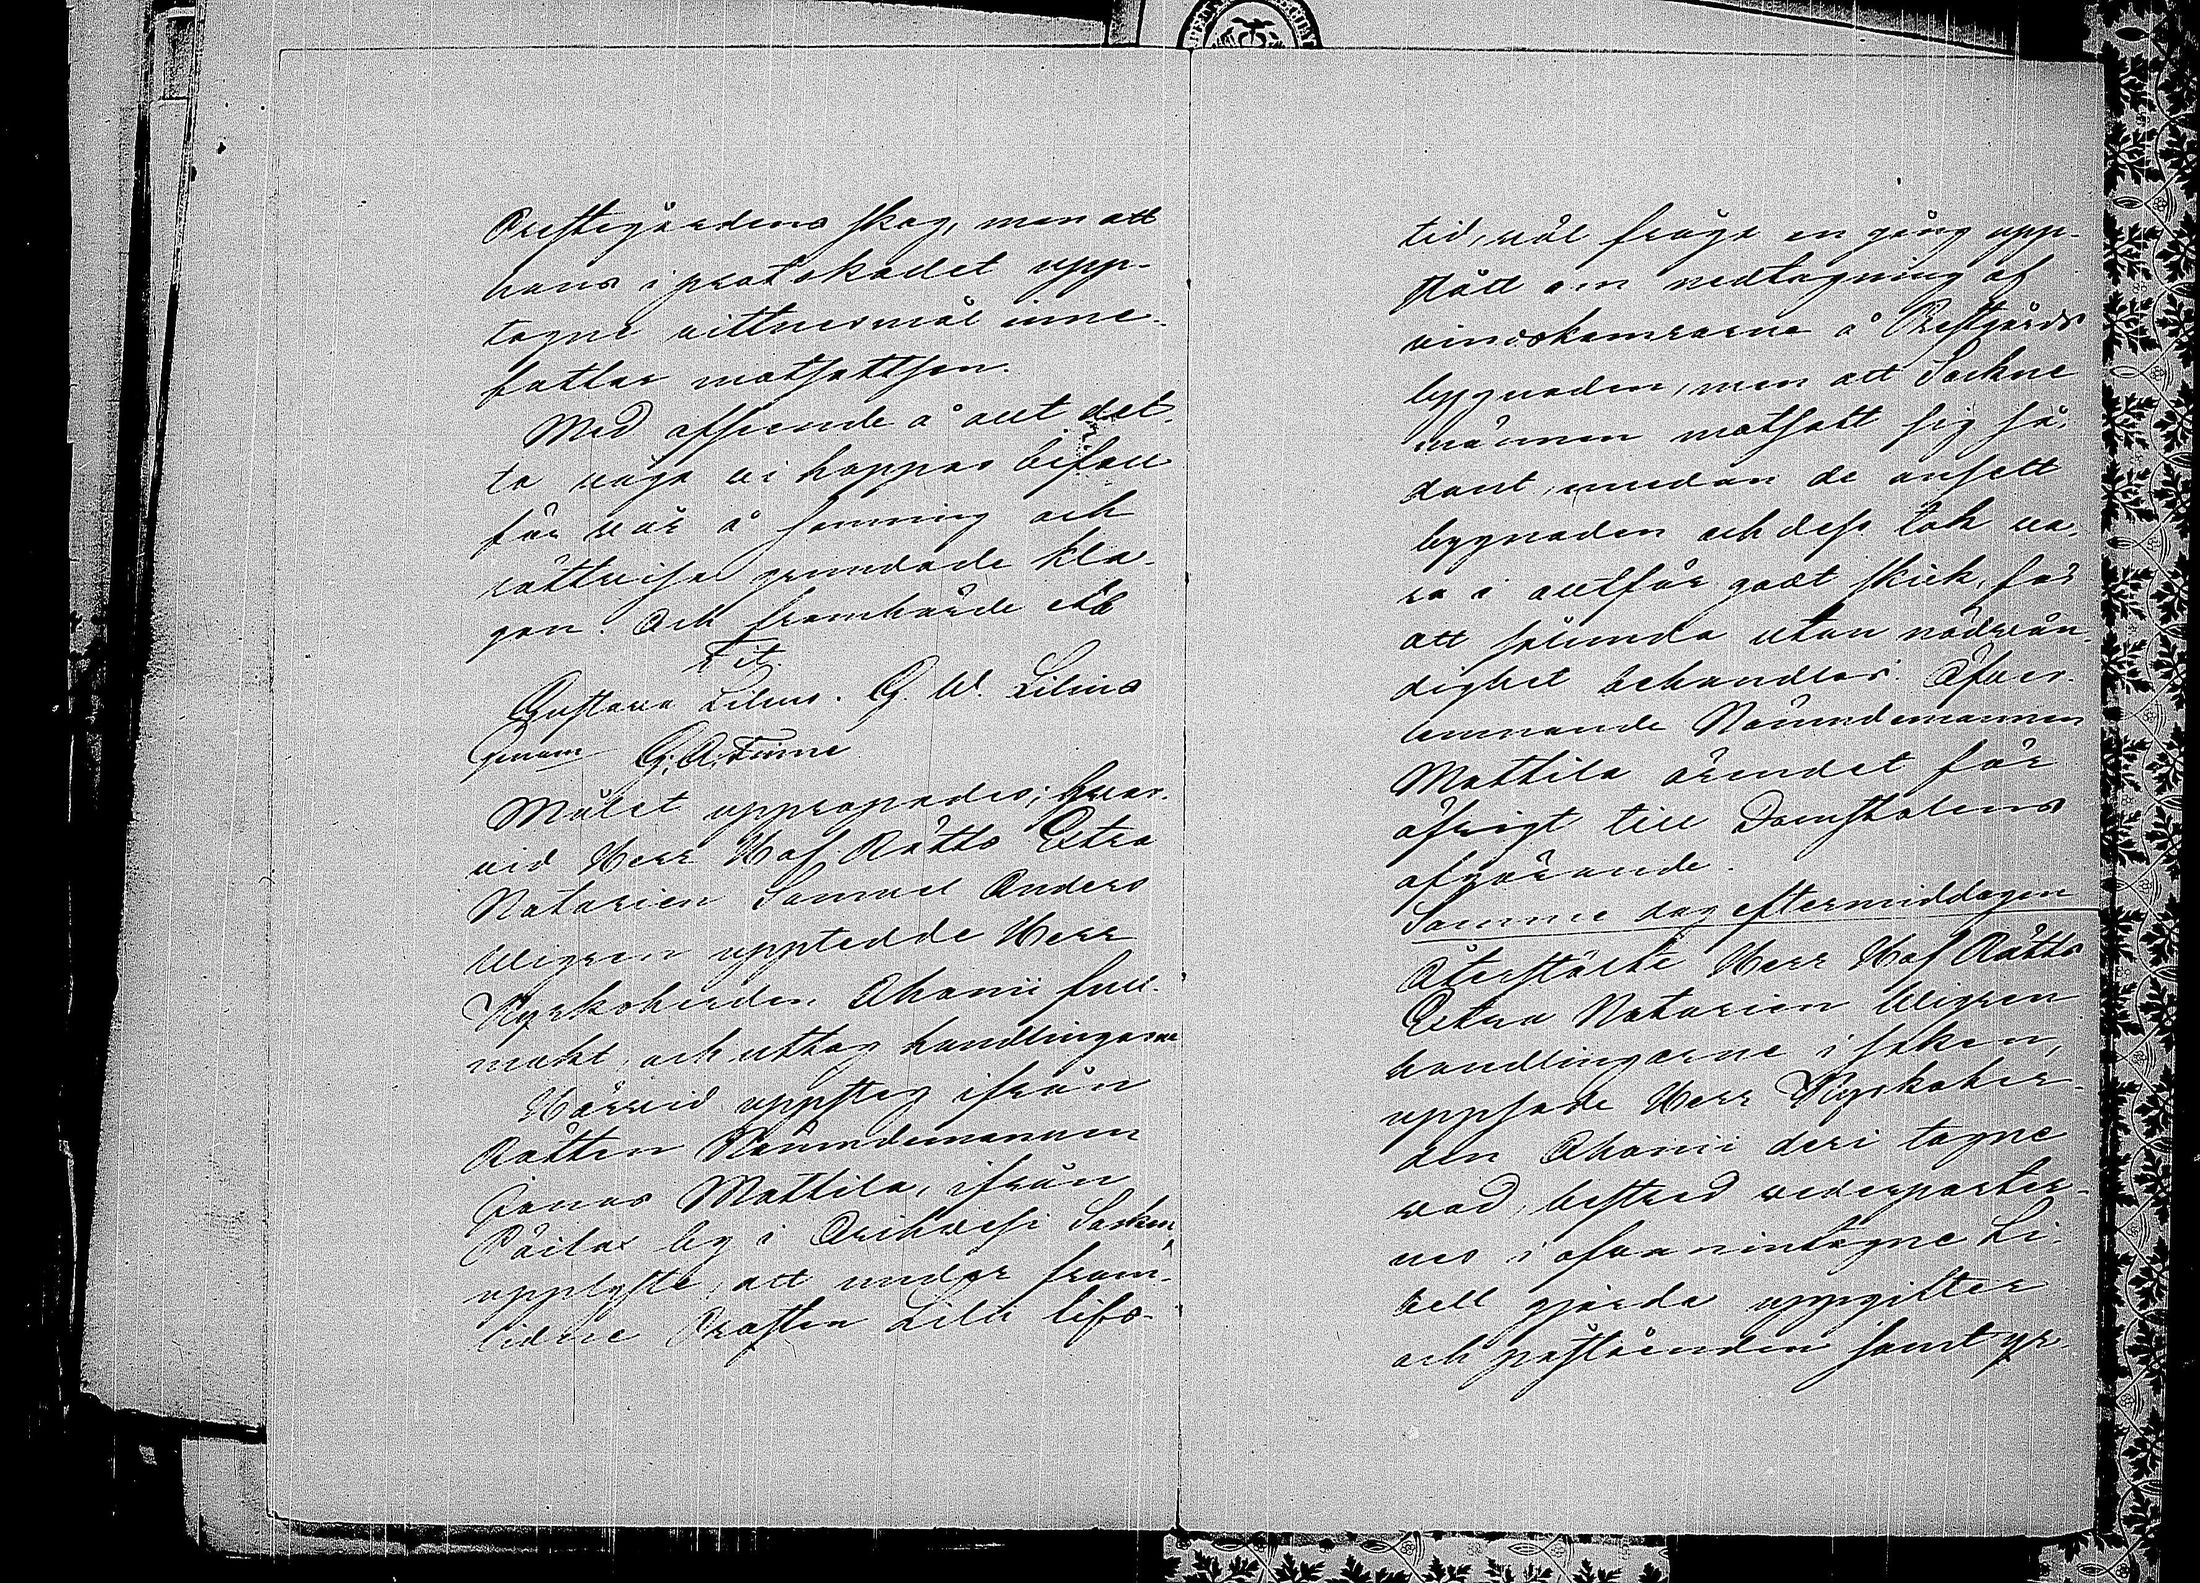 Prestegårdens skog, men att
hans i protokollet upp-
tagne vittnesmål inne-
fattar motsattsen.
Med afseende å allt det-
ta våga vi hoppas bifall
för vår å sanning och
rättvisa grundade kla-
gan. Och framhärde etc
Tit.
Gustava Lilius. G. W. Lilius
Genom G. A. Finne
Målet uppropades; hvar-
vid Herr Hof Rätts Extra
Notarien Samuel Anders
Wigren uppteddde Herr
Kyrkoherden Ahonii full-
makt, och uttog handlingarne
Härvid uppsteg ifrån
Rätten Nämndemannen
Jonas Mattila, ifrån
Päilax by i Orihvesi Socken,
upplyste, att under fram-
lidne Prosten Lilii lifs-
tid, väl fråga en gång upp-
stått om nedtagning af
vindskamrarne å Prestgårds
byggnaden, men att Sockne
männen motsatt sig så-
dant, emedan de ansett
byggnaden och dess tak va-
ra i alltför godt skick, för
att sålunda utan nödvän-
dighet behandlas. Öfver-
lemnande Nämndemannen
Mattila ärendet för
öfrigt till Domstolens
afgörande.
Samme dag eftermiddagen
Återstälte Herr Hof Rätts
Extra Notarien Wigren
handlingarne i saken,
uppsade Herr Kyrkoher-
den Ahonii deri tagne
vad, bestred vederparter-
nes i ofvan intagne Li-
bell gjorda uppgifter
och påståenden samt yr-